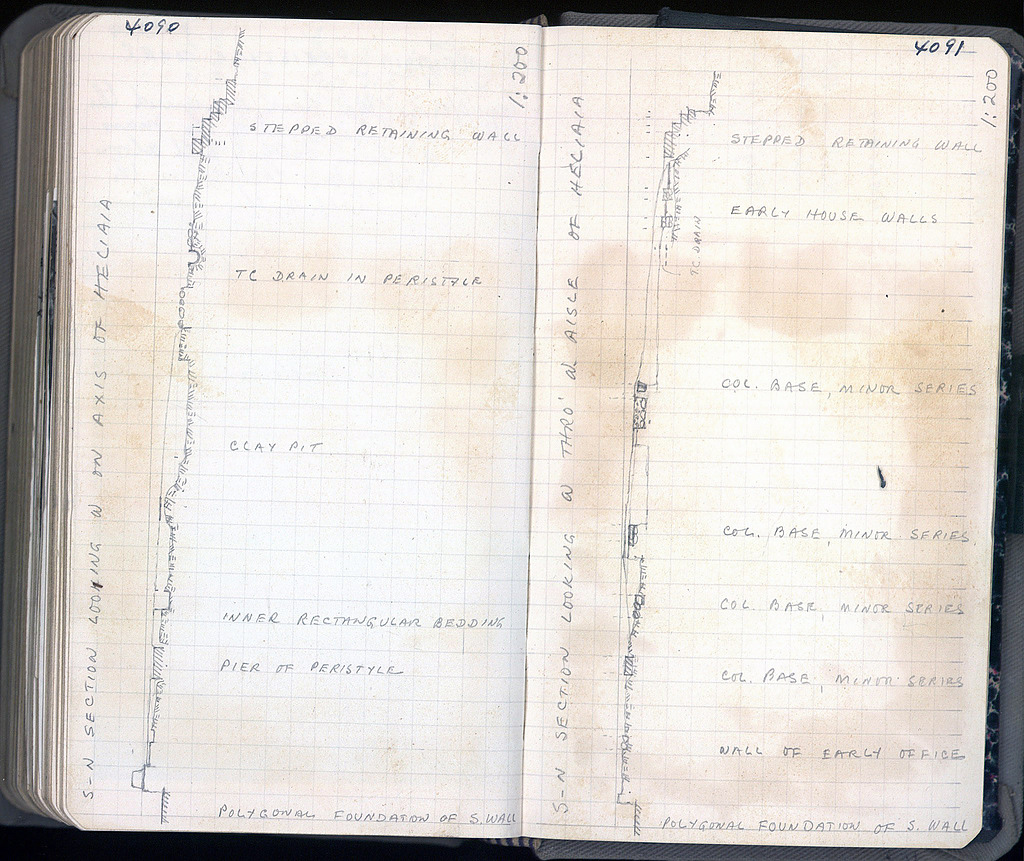 4090
1:200
STEPPED RETAINING WALL
S-N SECTION LOOKING W ON AXIS OF HELIAIA
TC DRAIN IN PERISTYLE
CLAY PIT
INNER RECTANGULAR BEDDING
PIER OF PERISTYLE
POLYGONAL FOUNDATION OF S. WALL
4091
1:200
STEPPED RETAINING WALL
S-N SECTION LOOKING W THRO' W AISLE OF HELIAIA
EARLY HOUSE WALLS
TC DRAIN
COL. BASE, MINOR SERIES
COL. BASE, MINOR SERIES
COL. BASE, MINOR SERIES
COL. BASE, MINOR SERIES
WALL OF EARLY OFFICE
POLYGONAL FOUNDATION OF S. WALL